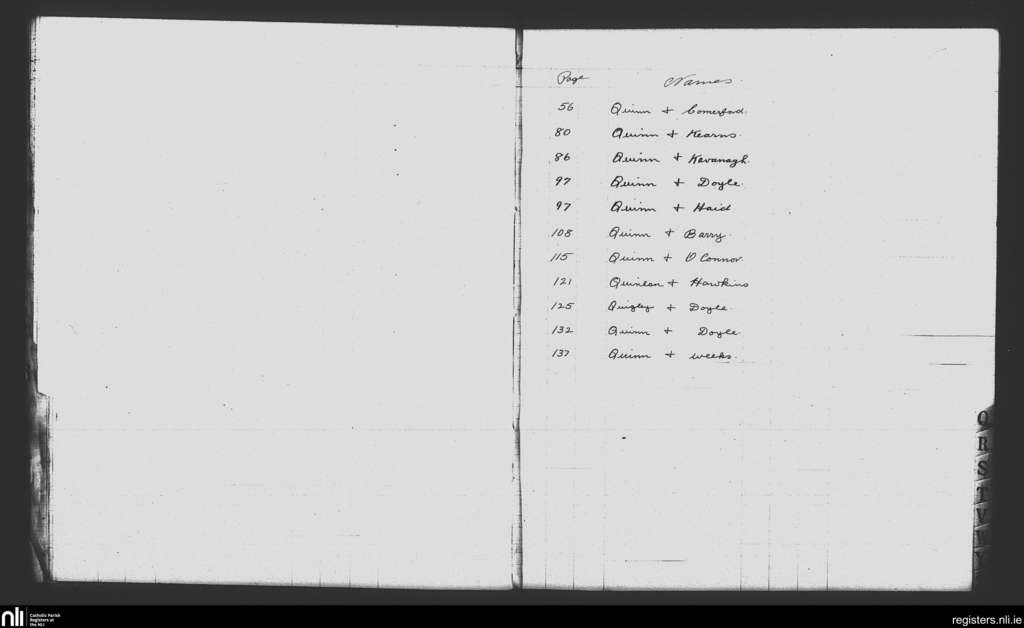 Page Names.
56 Quinn & Comerford.
80 Quinn & Kearns.
86 Quinn & Kavanagh.
97 Quinn & Doyle.
97 Quinn & Haid
108 Quinn & Barry.
115 Quinn & O Connor.
121 Quinlan & Hawkins
125 Quigley & Doyle.
132 Quinn & Doyle.
137 Quinn & weeks.
Q
R
S
T
V
W
Y
nli Catholic Parish
Registers at
the NLI
registers.nli.ie